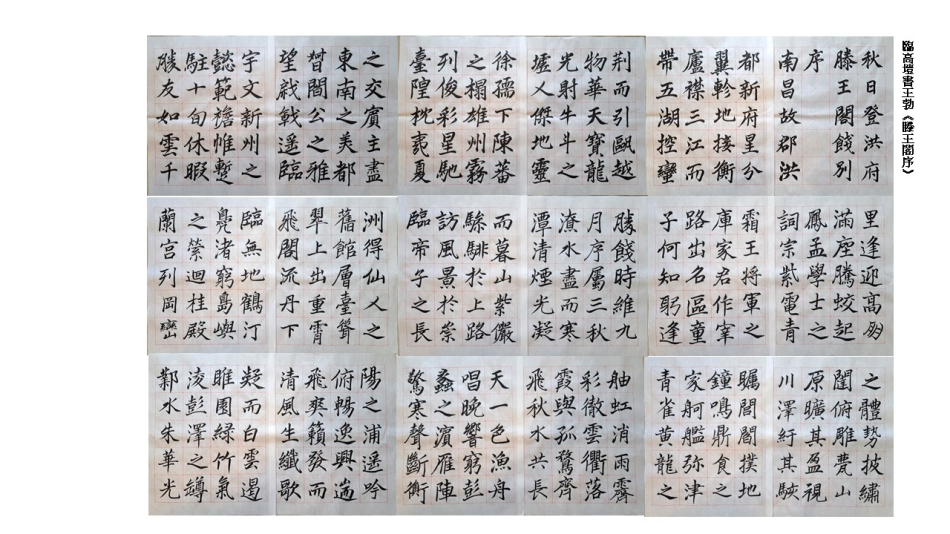 高塏書王勃《滕王閣序》
秋日登洪府
滕王閣餞別
序
南昌故郡洪
都新府星分
翼軫地接衡
廬襟三江而
帶五湖控蠻
荊而引甌越
物華天寶龍
光射牛斗之
墟人傑地靈
徐孺下陳蕃
之榻雄州霧
列俊彩星馳
臺隍枕夷夏
之交賓主盡
東南之美都
督閻公之雅
望棨戟遙臨
宇文新州之
懿範襜帷暫
駐十旬休暇
勝友如雲千
里逢迎高朋
滿座騰蛟起
鳳孟學士之
詞宗紫電青
霜王將軍之
庫家君作宰
路出名區童
子何知躬逢
勝餞時維九
月序屬三秋
潦水盡而寒
潭清煙光凝
而暮山紫儼
驂騑於上路
訪風景於崇
臨帝子之長
洲得仙人之
舊館層臺聳
翠上出重霄
飛閣流丹下
臨無地鶴汀
鳧渚窮島嶼
之縈迴桂殿
蘭宮列岡巒
之體勢披繡
闥俯雕甍山
原曠其盈視
川澤紆其駭
矚閭閻撲地
鐘鳴鼎食之
家舸艦弥津
青雀黃龍之
舳虹消雨霽
彩徹雲衢落
霞與孤鶩齊
飛秋水共長
天一色漁舟
唱晚響窮彭
蠡之濱雁陣
驚寒聲斷衡
陽之浦遙吟
俯暢逸興遄
飛爽籟發而
清風生纖歌
凝而白雲遏
睢園綠竹氣
凌彭澤之樽
鄴水朱華光